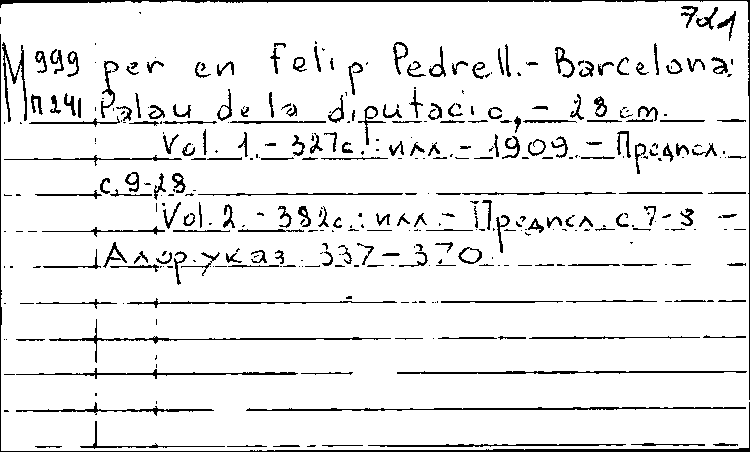 7d1
М 999 per en Felip Pedrell.- Barcelona:
П241 Palau de la diputacio, - 28 cm.
Vol. 1. - 327с.: илл. - 1909. - Предисл.
с. 9-28.
Vol. 2. - 382с.: илл. - Предисл. с. 7-8 -
Алф. указ. 337-370.